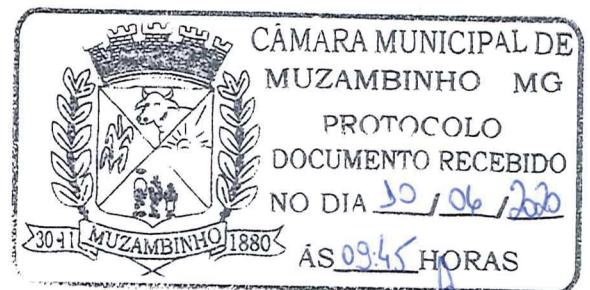 CÂMARA MUNICIPAL DE
MUZAMBINHO MG
PROTOCOLO
DOCUMENTO RECEBIDO
NO DIA 10 / 06 / 2020
ÁS 09:45 HORAS
30-11 MUZAMBINHO 1880